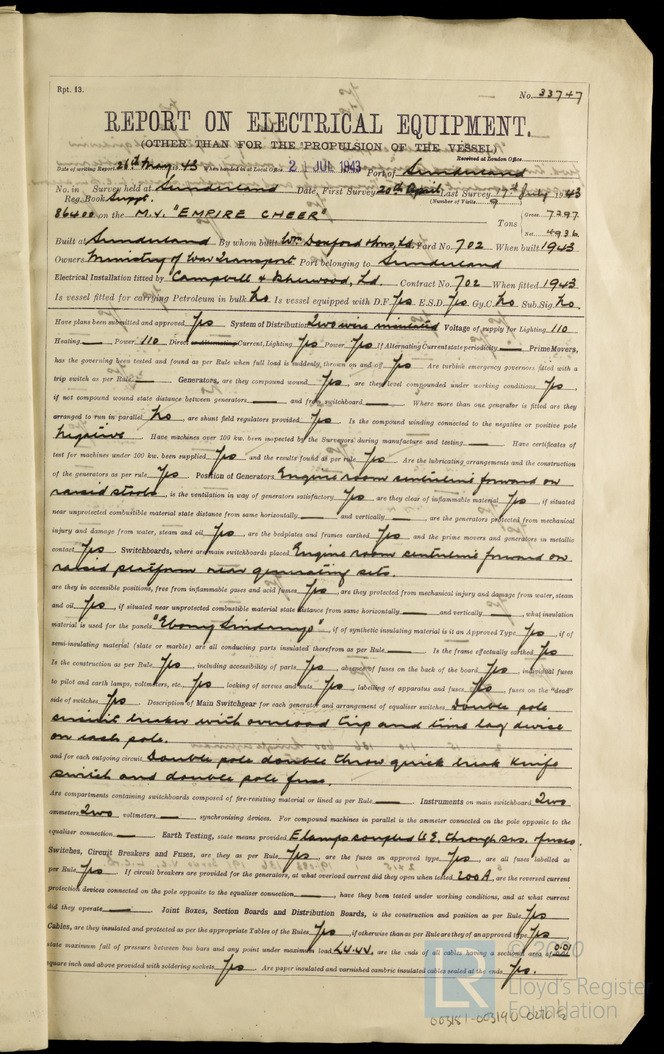 Rpt. 13.
No. 33747
REPORT ON ELECTRICAL EQUIPMENT.
(OTHER THAN FOR THE PROPULSION OF THE VESSEL)
Received at London Office
Date of writing Report 26th May 43 When handed in at Local Office 2 JUL 1943 Port of Sunderland
No. in Survey held at Sunderland Date, First Survey 20th April Last Survey 17th July 1943
Reg. Book. Suppt. (Number of Visits 9)
86400 on the M.V. "EMPIRE CHEER" Tons { Gross 7297 Net 4936
Built at Sunderland By whom built Wm. Doxford & Sons, Ld. Yard No. 702 When built 1943
Owners Ministry of War Transport Port belonging to Sunderland
Electrical Installation fitted by Campbell & Isherwood, Ld. Contract No. 702 When fitted 1943
Is vessel fitted for carrying Petroleum in bulk No Is vessel equipped with D.F. Yes E.S.D. Yes Gy.C. No Sub.Sig. No
Have plans been submitted and approved Yes System of Distribution Two wire insulated Voltage of supply for Lighting 110
Heating — Power 110 Direct or Alternating Current, Lighting Yes Power Yes If Alternating Current state periodicity — Prime Movers,
has the governing been tested and found as per Rule when full load is suddenly thrown on and off Yes Are turbine emergency governors fitted with a
trip switch as per Rule — Generators, are they compound wound Yes, are they level compounded under working conditions Yes,
if not compound wound state distance between generators — and from switchboard — Where more than one generator is fitted are they
arranged to run in parallel No, are shunt field regulators provided Yes Is the compound winding connected to the negative or positive pole
Negative Have machines over 100 kw. been inspected by the Surveyors during manufacture and testing — Have certificates of
test for machines under 100 kw. been supplied Yes and the results found as per rule Yes Are the lubricating arrangements and the construction
of the generators as per rule Yes Position of Generators Engine room centreline forward on
raised stools, is the ventilation in way of generators satisfactory Yes are they clear of inflammable material Yes, if situated
near unprotected combustible material state distance from same horizontally — and vertically — are the generators protected from mechanical
injury and damage from water, steam and oil Yes, are the bedplates and frames earthed Yes and the prime movers and generators in metallic
contact Yes Switchboards, where are main switchboards placed Engine room centreline forward on
raised platform near generating sets.
are they in accessible positions, free from inflammable gases and acid fumes Yes, are they protected from mechanical injury and damage from water, steam
and oil Yes, if situated near unprotected combustible material state distance from same horizontally — and vertically —, what insulation
material is used for the panels "Ebony Sindanyo", if of synthetic insulating material is it an Approved Type Yes, if of
semi-insulating material (slate or marble) are all conducting parts insulated therefrom as per Rule — Is the frame effectually earthed Yes
Is the construction as per Rule Yes, including accessibility of parts Yes, absence of fuses on the back of the board Yes, individual fuses
to pilot and earth lamps, voltmeters, etc. Yes locking of screws and nuts Yes, labelling of apparatus and fuses Yes, fuses on the "dead"
side of switches Yes Description of Main Switchgear for each generator and arrangement of equaliser switches Double pole
circuit breaker with overload trip and time lag device
on each pole.
and for each outgoing circuit Double pole double throw quick break knife
switch and double pole fuse.
Are compartments containing switchboards composed of fire-resisting material or lined as per Rule — Instruments on main switchboard Two
ammeters Two voltmeters — synchronising devices. For compound machines in parallel is the ammeter connected on the pole opposite to the
equaliser connection — Earth Testing, state means provided E lamps coupled to E. through sw. & fuses
Switches, Circuit Breakers and Fuses, are they as per Rule Yes, are the fuses an approved type Yes, are all fuses labelled as
per Rule Yes If circuit breakers are provided for the generators, at what overload current did they open when tested 200A, are the reversed current
protection devices connected on the pole opposite to the equaliser connection —, have they been tested under working conditions, and at what current
did they operate — Joint Boxes, Section Boards and Distribution Boards, is the construction and position as per Rule Yes
Cables, are they insulated and protected as per the appropriate Tables of the Rules Yes, if otherwise than as per Rule are they of an approved type Yes
state maximum fall of pressure between bus bars and any point under maximum load L4.4V, are the ends of all cables having a sectional area of 0.01
square inch and above provided with soldering sockets Yes Are paper insulated and varnished cambric insulated cables sealed at the ends Yes.
LR
© 2020
Lloyd's Register
Foundation
003181-003190-0270